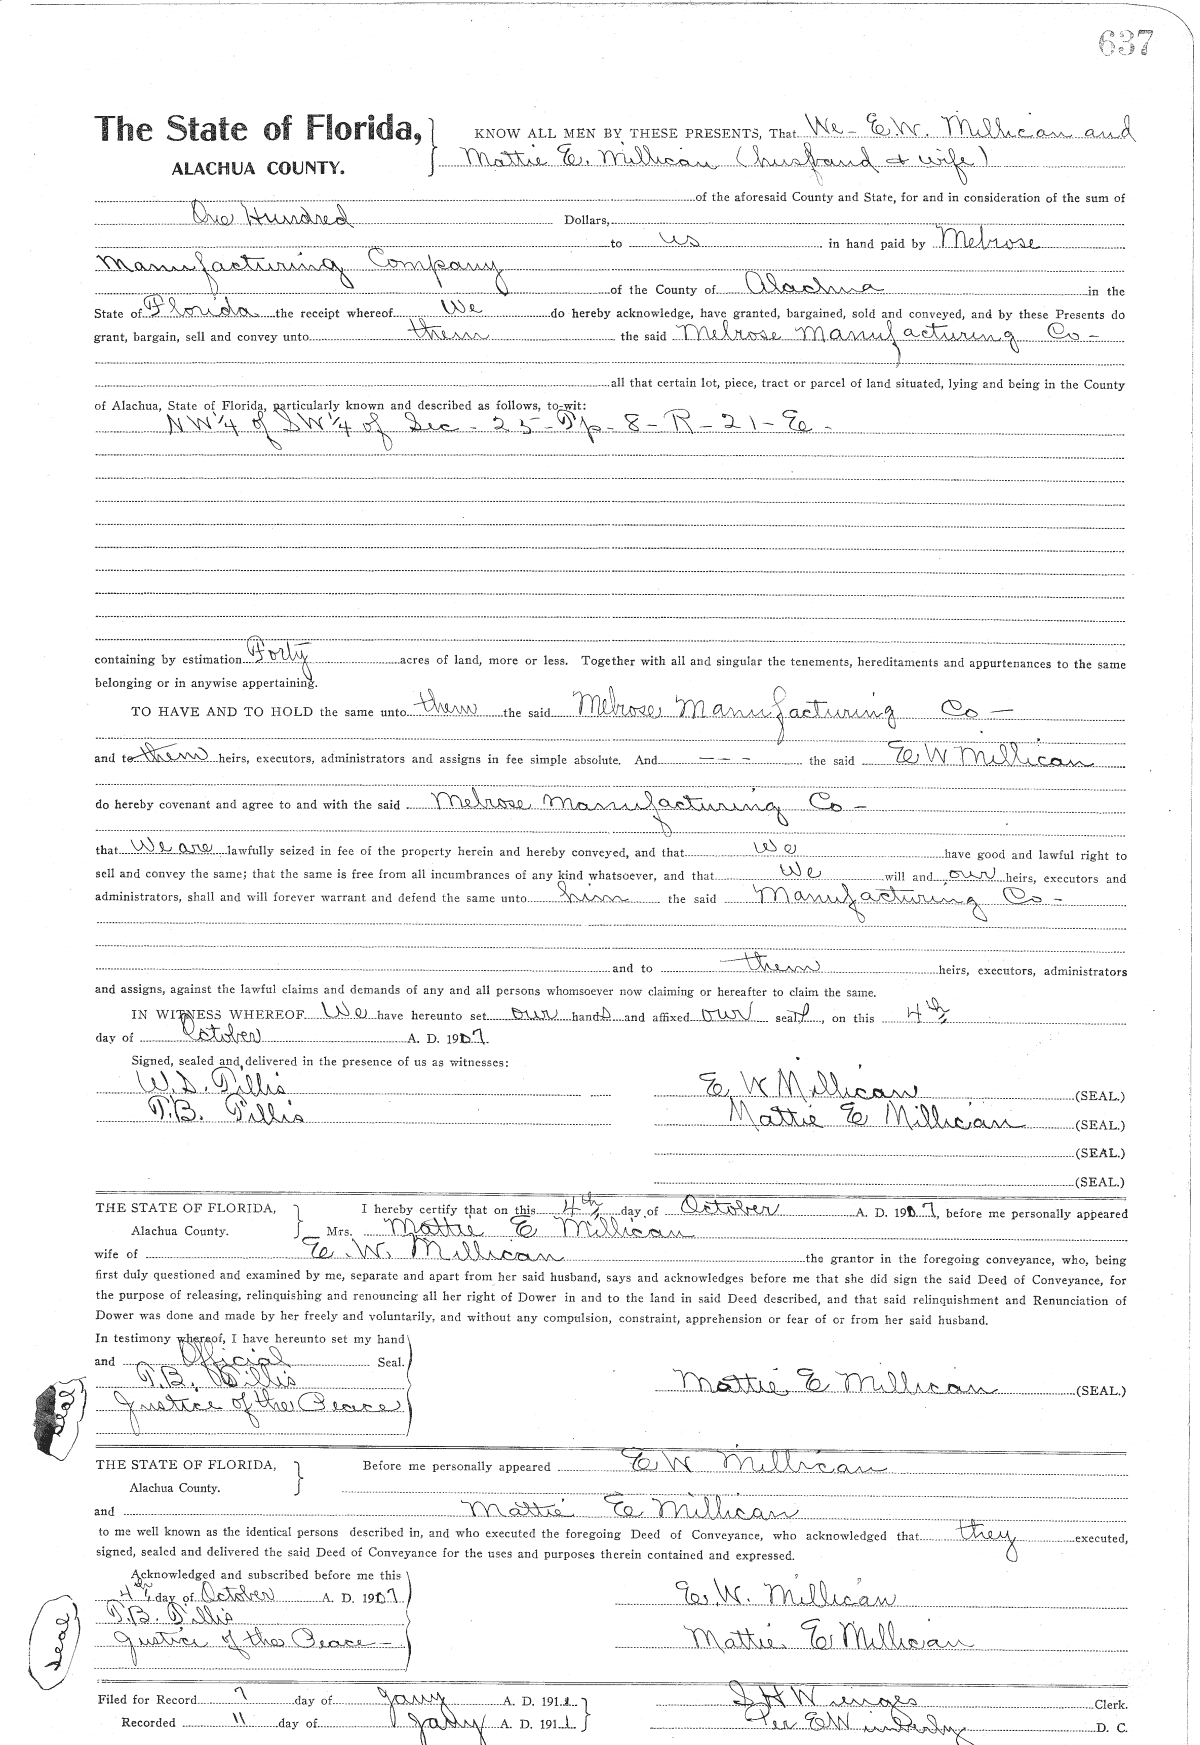 637
The State of Florida, KNOW ALL MEN BY THESE PRESENTS, That We - E. W. Millican and
ALACHUA COUNTY. Mattie E. Millican (husband & wife)
of the aforesaid County and State, for and in consideration of the sum of
One Hundred Dollars,
to us in hand paid by Melrose
Manufacturing Company
of the County of Alachua in the
State of Florida the receipt whereof We do hereby acknowledge, have granted, bargained, sold and conveyed, and by these Presents do
grant, bargain, sell and convey unto them the said Melrose Manufacturing Co -
all that certain lot, piece, tract or parcel of land situated, lying and being in the County
of Alachua, State of Florida, particularly known and described as follows, to-wit:
NW 1/4 of SW 1/4 of Sec - 25 - Tp - 8 - R - 21 - E -
containing by estimation Forty acres of land, more or less. Together with all and singular the tenements, hereditaments and appurtenances to the same
belonging or in anywise appertaining.
TO HAVE AND TO HOLD the same unto them the said Melrose Manufacturing Co -
and to them heirs, executors, administrators and assigns in fee simple absolute. And - - - the said E W Millican
do hereby covenant and agree to and with the said Melrose Manufacturing Co -
that We are lawfully seized in fee of the property herein and hereby conveyed, and that We have good and lawful right to
sell and convey the same; that the same is free from all incumbrances of any kind whatsoever, and that We will and our heirs, executors and
administrators, shall and will forever warrant and defend the same unto him the said Manufacturing Co -
and to them heirs, executors, administrators
and assigns, against the lawful claims and demands of any and all persons whomsoever now claiming or hereafter to claim the same.
IN WITNESS WHEREOF We have hereunto set our hands and affixed our seals, on this 4th
day of October A. D. 1907.
Signed, sealed and delivered in the presence of us as witnesses:
W. S. Tillis E W Millican (SEAL.)
T. B. Tillis Mattie E Millican (SEAL.)
(SEAL.)
(SEAL.)
THE STATE OF FLORIDA, I hereby certify that on this 4th day of October A. D. 1907, before me personally appeared
Alachua County. Mrs. Mattie E Millican
wife of E. W. Millican the grantor in the foregoing conveyance, who, being
first duly questioned and examined by me, separate and apart from her said husband, says and acknowledges before me that she did sign the said Deed of Conveyance, for
the purpose of releasing, relinquishing and renouncing all her right of Dower in and to the land in said Deed described, and that said relinquishment and Renunciation of
Dower was done and made by her freely and voluntarily, and without any compulsion, constraint, apprehension or fear of or from her said husband.
In testimony whereof, I have hereunto set my hand
and Official Seal.
T. B. Tillis Mattie E Millican (SEAL.)
Justice of the Peace
seal
THE STATE OF FLORIDA, Before me personally appeared E W Millican
Alachua County.
and Mattie E Millican
to me well known as the identical persons described in, and who executed the foregoing Deed of Conveyance, who acknowledged that they executed,
signed, sealed and delivered the said Deed of Conveyance for the uses and purposes therein contained and expressed.
Acknowledged and subscribed before me this
4th day of October A. D. 1907 E. W. Millican
T. B. Tillis
Justice of the Peace - Mattie E Millican
seal
Filed for Record 7 day of Jany A. D. 1911 S H Wienges Clerk.
Recorded 11 day of Jany A. D. 1911 Per E Wimberly D. C.